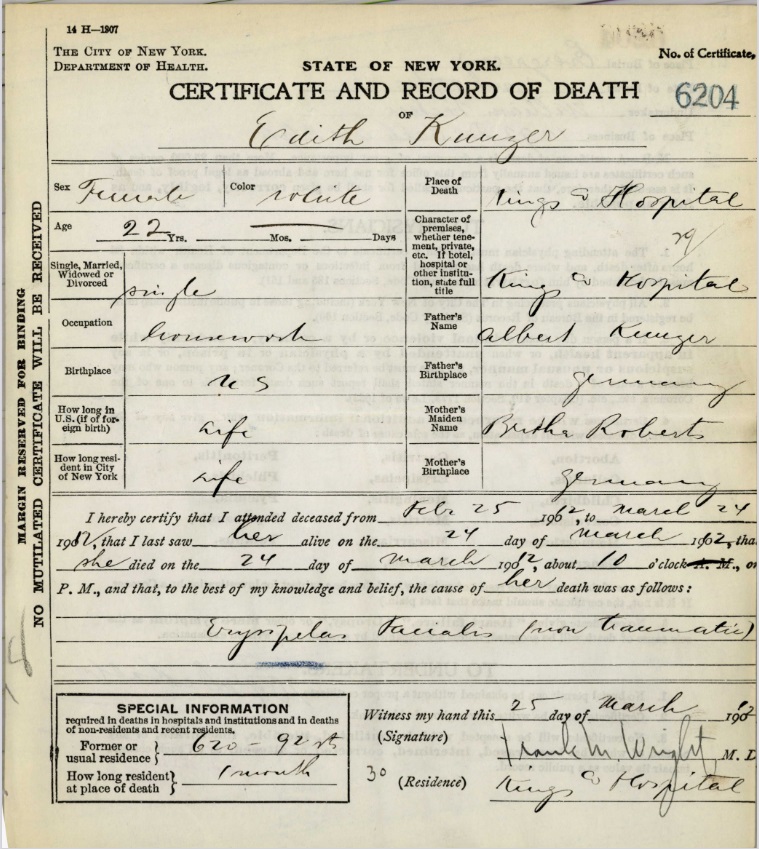 14 H—1907
THE CITY OF NEW YORK.
DEPARTMENT OF HEALTH.
STATE OF NEW YORK.
No. of Certificate,
CERTIFICATE AND RECORD OF DEATH
6204
OF
Edith Kunzer
Sex Female Color White
Age 22 Yrs. Mos. Days
Single, Married, Widowed or Divorced single
Occupation housework
Birthplace U S
How long in U.S. (if of foreign birth) Life
How long resident in City of New York Life
Place of Death Kings Co Hospital
Character of premises, whether tenement, private, etc. If hotel, hospital or other institution, state full title Kings Co Hospital
29/
Father's Name Albert Kunzer
Father's Birthplace Germany
Mother's Maiden Name Bertha Roberts
Mother's Birthplace Germany
MARGIN RESERVED FOR BINDING
NO MUTILATED CERTIFICATE WILL BE RECEIVED
I hereby certify that I attended deceased from Feb. 25 1912, to March 24
1912, that I last saw her alive on the 24 day of March 1912, tha
she died on the 24 day of March 1912, about 10 o'clock A. M., or
P. M., and that, to the best of my knowledge and belief, the cause of her death was as follows:
Erysipelas Facialis (non traumatic)
SPECIAL INFORMATION
required in deaths in hospitals and institutions and in deaths
of non-residents and recent residents.
Former or usual residence } 620 - 92 st
How long resident at place of death } 1 month
Witness my hand this 25 day of March 1912
(Signature) Frank M Wright M. D
30 (Residence) Kings Co Hospital